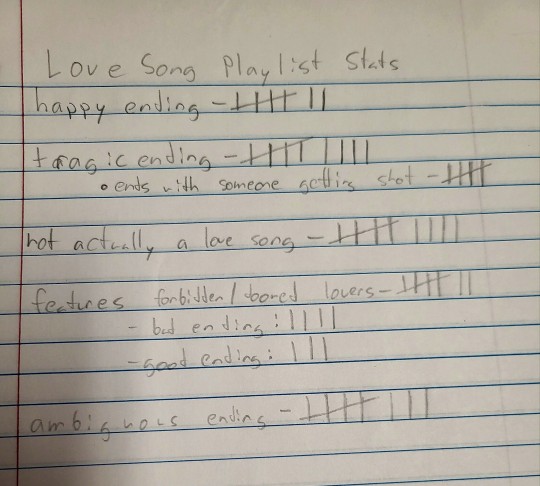 Love Song Playlist Stats
happy ending - 卌 ||
tragic ending - 卌 ||||
• ends with someone getting shot - 卌
not actually a love song - 卌 ||||
features forbidden/ lovers - 卌 ||
- bad ending: ||||
- good ending: |||
ambiguous ending - 卌 |||